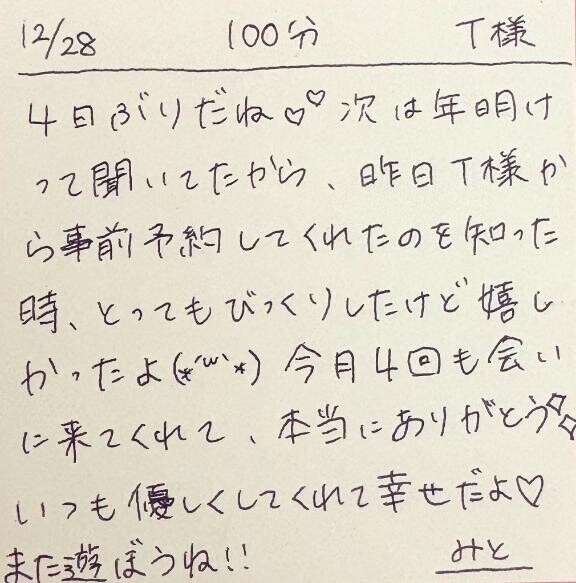 12/28 100分 T様
4日ぶりだね♡♡ 次は年明け
って聞いてたから、昨日T様か
ら事前予約してくれたのを知った
時、とってもびっくりしたけど嬉し
かったよ(*´ω`*) 今月4回も会い
に来てくれて、本当にありがとう✧✧
いつも優しくしてくれて幸せだよ♡
また遊ぼうね!! みと